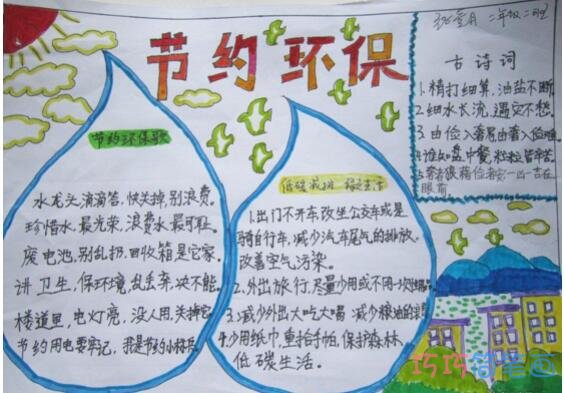 节约环保
二年级二班
古诗词
1.精打细算，油盐不断
2.细水长流，遇灾不愁
3.由俭入奢易由奢入俭难
4.谁知盘中餐，粒粒皆辛苦
眼前
节约环保歌
水龙头滴滴答，快关掉，别浪费。
珍惜水，最光荣，浪费水最可耻。
废电池，别乱扔，回收箱是它家。
讲卫生，保环境，乱丢弃，决不能。
楼道里，电灯亮，没人用，关掉它
节约用电要牢记，我是节约小标兵
低碳减排 绿色生活
1.出门不开车改坐公交车或是
骑自行车，减少汽车尾气的排放，
改善空气污染。
2.外出旅行，尽量少用或不用一次性
3.减少外出大吃大喝 减少粮油的浪费
4.少用纸巾，重拾手帕，保护森林，
低碳生活。
巧巧简笔画